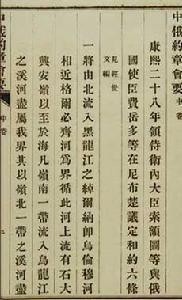 中俄約章會要
康熙二十八年領侍衛內大臣索額圖等與俄
國使臣費岳多等在尼布楚議定和約六條
見經世
文編
一將由北流入黑龍江之綽爾納卽烏倫穆河
相近格爾必齊河爲界循此河上流有石大
興安嶺以至於海凡嶺南一帶流入烏龍江
之溪河盡屬我界其以嶺北一帶之溪河盡
中俄約章會要 中卷